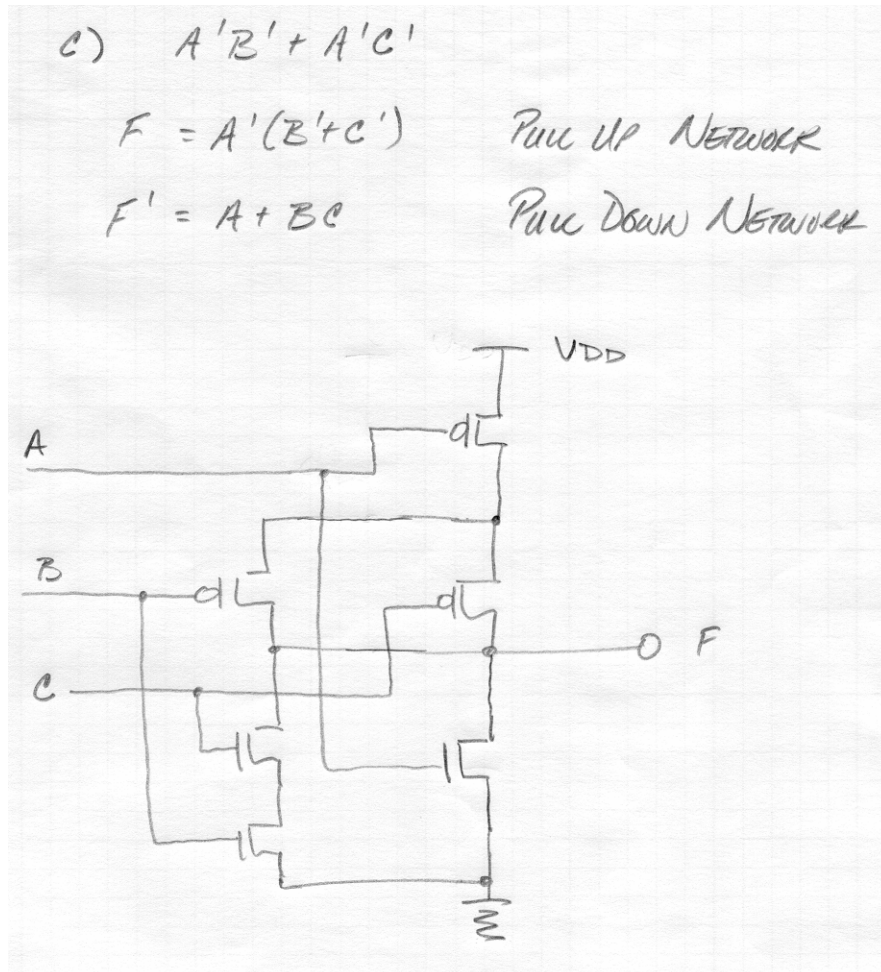 C) A'B' + A'C'
F = A'(B'+C') PULL UP NETWORK
F' = A + BC PULL DOWN NETWORK
VDD
A
B
F
C